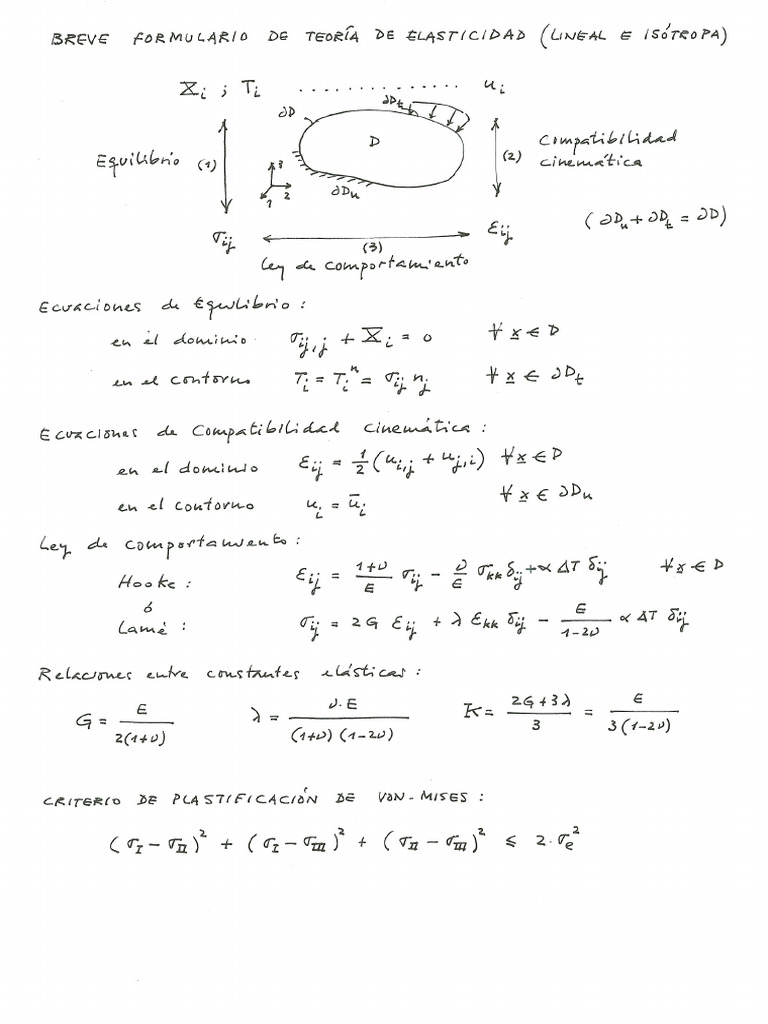 BREVE FORMULARIO DE TEORÍA DE ELASTICIDAD (LINEAL E ISÓTROPA)
X_i ; T_i . . . . . . . . . . . . . u_i
∂D ∂D_t
D
Equilibrio (1)
(2) Compatibilidad cinemática
3
1 2
∂D_u
(∂D_u + ∂D_t = ∂D)
σ_ij (3) ε_ij
Ley de comportamiento
Ecuaciones de Equilibrio :
en el dominio σ_ij,j + X_i = 0 ∀ x ∈ D
en el contorno T_i = T_i^n = σ_ij n_j ∀ x ∈ ∂D_t
Ecuaciones de Compatibilidad cinemática :
en el dominio ε_ij = 1/2 (u_i,j + u_j,i) ∀ x ∈ D
en el contorno u_i = ū_i ∀ x ∈ ∂D_u
Ley de comportamiento :
Hooke : ε_ij = (1+ν)/E σ_ij − ν/E σ_kk δ_ij + α ΔT δ_ij ∀ x ∈ D
ó
Lamé : σ_ij = 2G ε_ij + λ ε_kk δ_ij − E/(1−2ν) α ΔT δ_ij
Relaciones entre constantes elásticas :
G = E/(2(1+ν)) λ = ν·E/((1+ν)(1−2ν)) K = (2G+3λ)/3 = E/(3(1−2ν))
CRITERIO DE PLASTIFICACIÓN DE VON-MISES :
(σ_I − σ_II)² + (σ_I − σ_III)² + (σ_II − σ_III)² ≤ 2·σ_e²